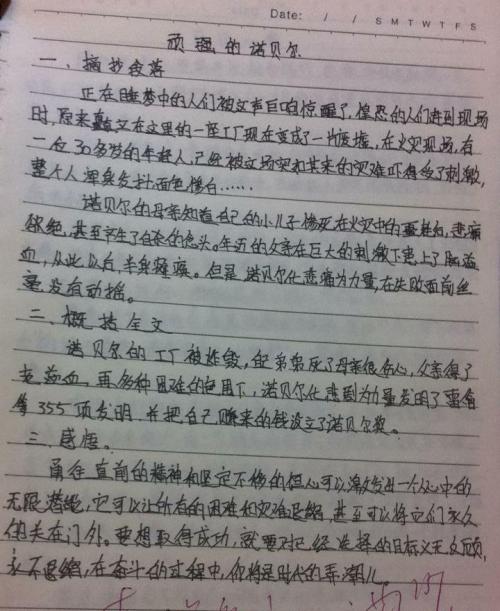 Date: / / S M T W T F S
顽强的诺贝尔
一、摘抄段落
正在睡梦中的人们被这声巨响惊醒了,惶恐的人们赶到现场
时,原来矗立在这里的一座工厂现在变成了一片废墟,在火灾现场,有
一位30多岁的年轻人,已经被这场突如其来的灾难吓得受了刺激,
整个人浑身发抖面色惨白……
诺贝尔的母亲知道自己的小儿子惨死在火灾中的噩耗后,悲痛
欲绝,甚至产生了自杀的念头。年迈的父亲在巨大的刺激下患上了脑溢
血,从此以后,半身瘫痪。但是诺贝尔化悲痛为力量,在失败面前丝
毫没有动摇。
二、概括全文
诺贝尔的工厂被炸毁,他弟弟死了母亲很伤心,父亲得了
脑溢血,再多种困难的使用下,诺贝尔化悲剧为力量发明了雷管
等355项发明,并把自己赚来的钱设立了诺贝尔奖。
三、感悟。
勇往直前的精神和坚定不移的信心可以激发出一个人心中的
无限潜能,它可以让所有的困难和灾难退缩,甚至可以将它们永久
的关在门外。要想取得成功,就要对已经选择的目标义无反顾,
永不退缩,在奋斗的过程中,你将是时代的弄潮儿。